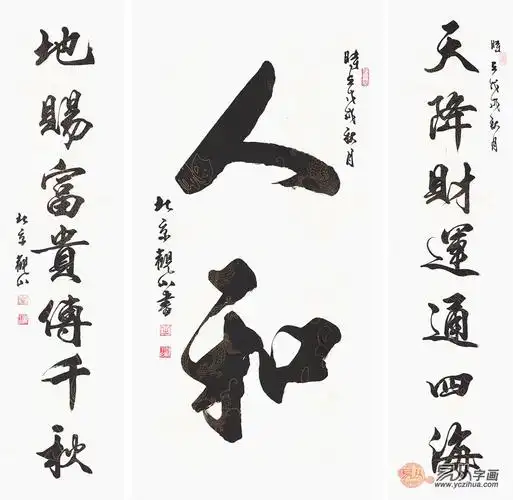 天降財運通四海
時在戊戌秋月
人和
時在戊戌秋月
北京觀山書
地賜富貴傳千秋
北京觀山
易从字画
www.yczihua.com